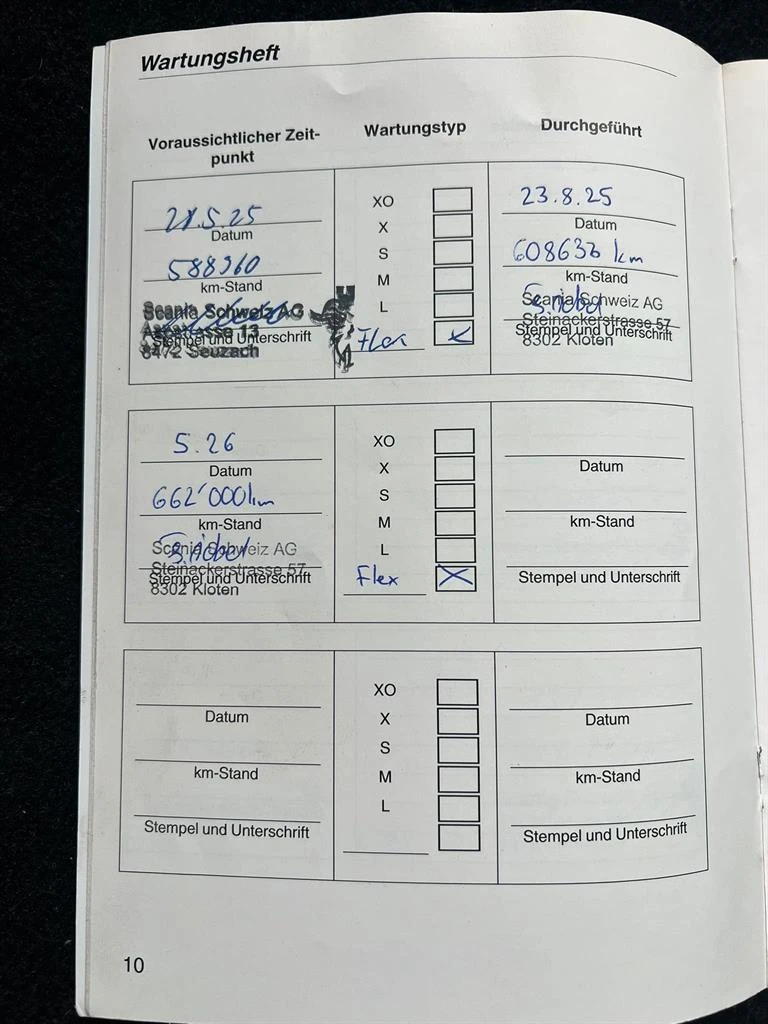 Wartungsheft
Voraussichtlicher Zeit-
punkt
Wartungstyp
Durchgeführt
Datum
588960
km-Stand
Scania Schweiz AG
13
Stempel und Unterschrift
8472 Seuzach
XO
X
S
M
L
Flex
23.8.25
Datum
km
km-Stand
Scania Schweiz AG
Steinackerstrasse 57
Stempel und Unterschrift
8302 Kloten
5.26
Datum
662'000km
km-Stand
Scania Schweiz AG
Steinackerstrasse 57
Stempel und Unterschrift
8302 Kloten
XO
X
S
M
L
Flex
Datum
km-Stand
Stempel und Unterschrift
Datum
km-Stand
Stempel und Unterschrift
XO
X
S
M
L
Datum
km-Stand
Stempel und Unterschrift
10